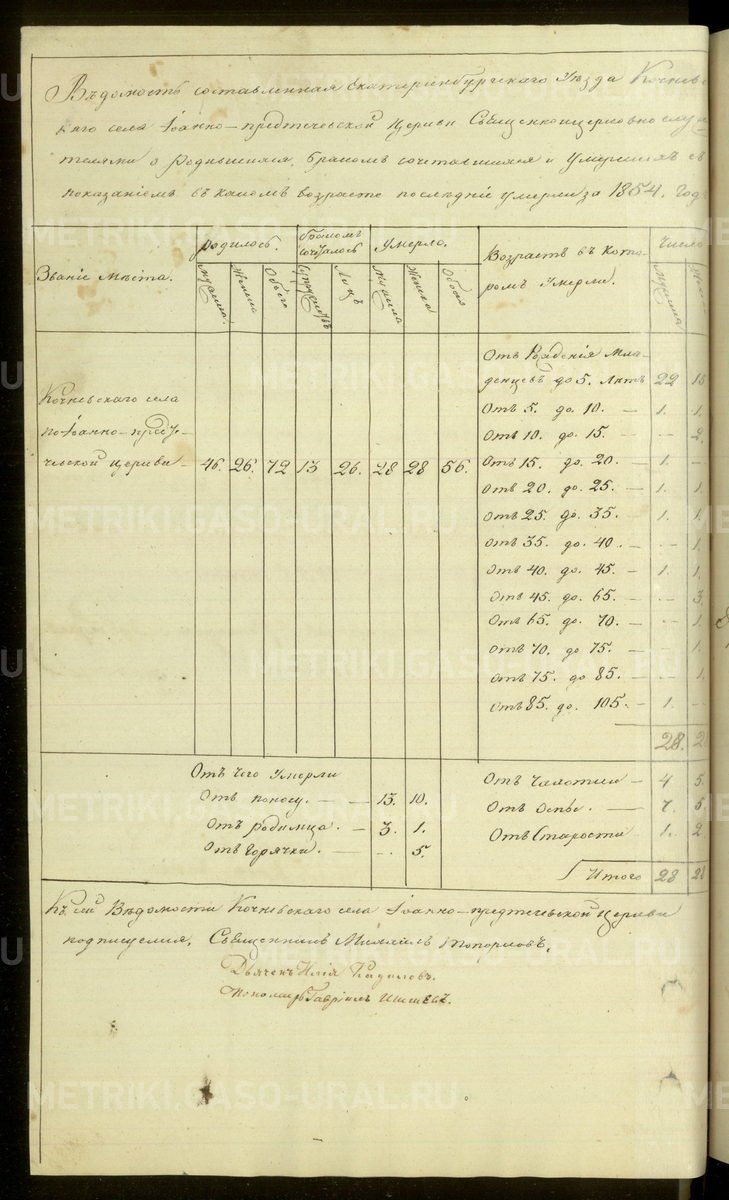 Вѣдомость составленная Екатеринбургскаго Уѣзда Кочнев
каго села Іоанно-предтечевской Церкви Священноцерковнослу
телями о родившихся, бракомъ сочетавшихся и умершихъ съ
показаніемъ въ какомъ возрастѣ послѣдніе умерли за 1854. Годъ
Званіе мѣста.
родилось.
бракомъ сочеталось
Умерло.
Возрастъ въ кото-
ромъ Умерли.
Число
мужска. Женска Обоего Супружествъ Лицъ мужска Женска Обоего мужска Женс
Кочневскаго села
по Іоанно-предте-
чевской церкви - 46. 26. 72 13 26. 28 28 56.
Отъ Рожденія Мла-
денцевъ до 5. лѣтъ 22 15
Отъ 5. до 10. — 1. 1.
Отъ 10. до 15. — - 2.
Отъ 15. до 20. — 1. —
Отъ 20. до 25. — 1. 1.
Отъ 25. до 35. — 1. 1.
Отъ 35. до 40. — - 1.
Отъ 40. до 45. — 1. 1.
Отъ 45. до 65. — - 3.
Отъ 65. до 70. — - 1.
Отъ 70. до 75. — - 1.
Отъ 75. до 85. — - 1.
Отъ 85. до 105. — 1. -
28. 28
Отъ чего Умерли
Отъ поносу. — 13. 10.
Отъ родимца. — 3. 1.
Отъ Горячки. — - 5.
Отъ Чахотки — 4 5.
Отъ Оспы. — 7. 5.
Отъ Старости 1. 2
Итого 28 28
Къ сей Вѣдомости Кочневскаго села Іоанно-предтечевской Церкви
подписуемся, Священникъ Михаилъ Топорковъ,
Дьячекъ Илія
Пономарь Гавріилъ
METRIKI.GASO-URAL.RU